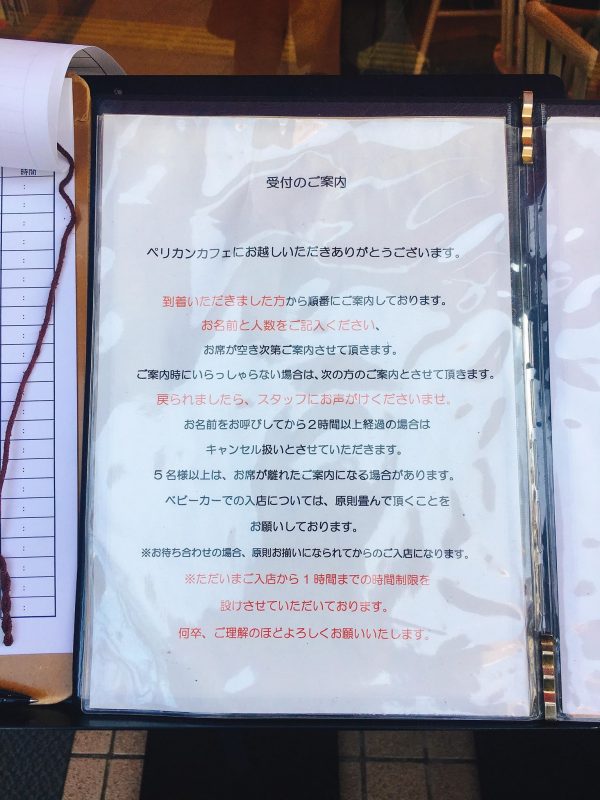 時間
受付のご案内
ペリカンカフェにお越しいただきありがとうございます。
到着いただきました方から順番にご案内しております。
お名前と人数をご記入ください、
お席が空き次第ご案内させて頂きます。
ご案内時にいらっしゃらない場合は、次の方のご案内とさせて頂きます。
戻られましたら、スタッフにお声がけくださいませ。
お名前をお呼びしてから2時間以上経過の場合は
キャンセル扱いとさせていただきます。
5名様以上は、お席が離れたご案内になる場合があります。
ベビーカーでの入店については、原則畳んで頂くことを
お願いしております。
※お待ち合わせの場合、原則お揃いになられてからのご入店になります。
※ただいまご入店から1時間までの時間制限を
設けさせていただいております。
何卒、ご理解のほどよろしくお願いいたします。